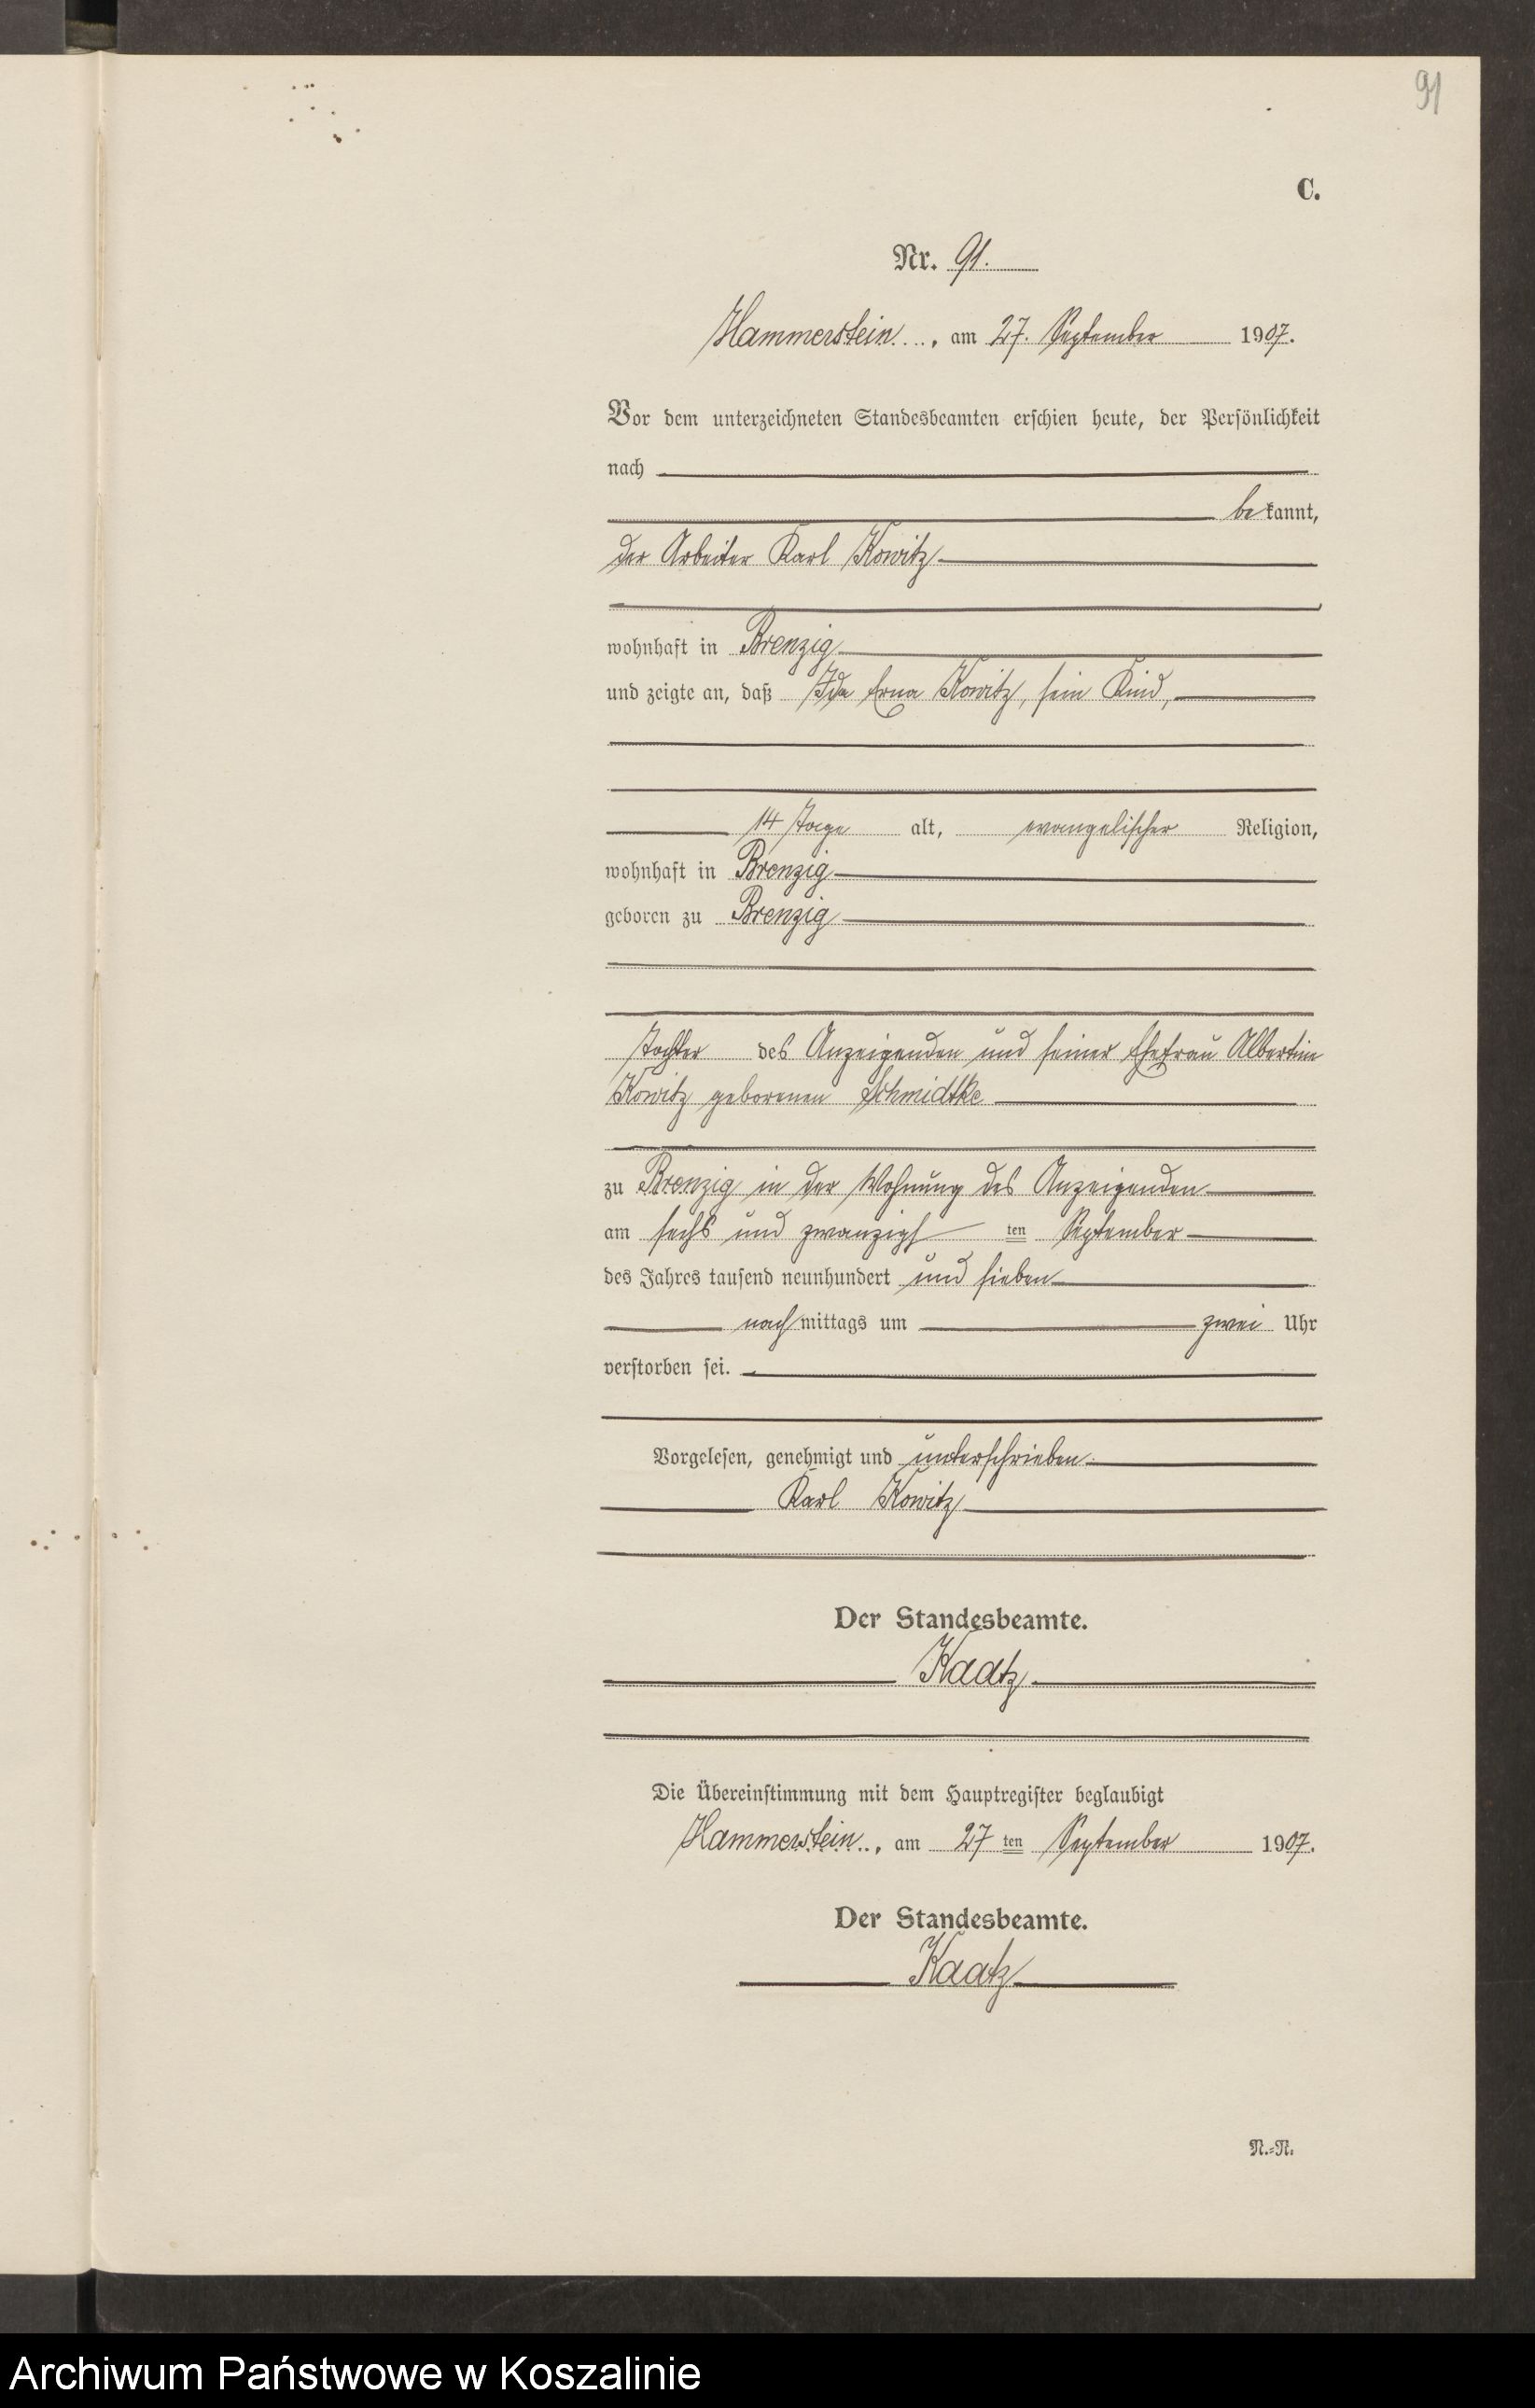 91
C.
Nr. 91.
Hammerstein, am 27. September 1907.
Vor dem unterzeichneten Standesbeamten erschien heute, der Persönlichkeit
nach
bekannt,
der Arbeiter Karl Kowitz
wohnhaft in Brenzig
und zeigte an, daß Ida Erna Kowitz, sein Kind,
14 Tage alt, evangelischer Religion,
wohnhaft in Brenzig
geboren zu Brenzig
Tochter des Anzeigenden und seiner Ehefrau Albertine
Kowitz geborenen Schmidtke
zu Brenzig in der Wohnung des Anzeigenden
am sechs und zwanzigsten September
des Jahres tausend neunhundert und sieben
nachmittags um zwei Uhr
verstorben sei.
Vorgelesen, genehmigt und unterschrieben.
Karl Kowitz
Der Standesbeamte.
Kaatz
Die Übereinstimmung mit dem Hauptregister beglaubigt
Hammerstein, am 27 ten September 1907.
Der Standesbeamte.
Kaatz
N.=R.
Archiwum Państwowe w Koszalinie